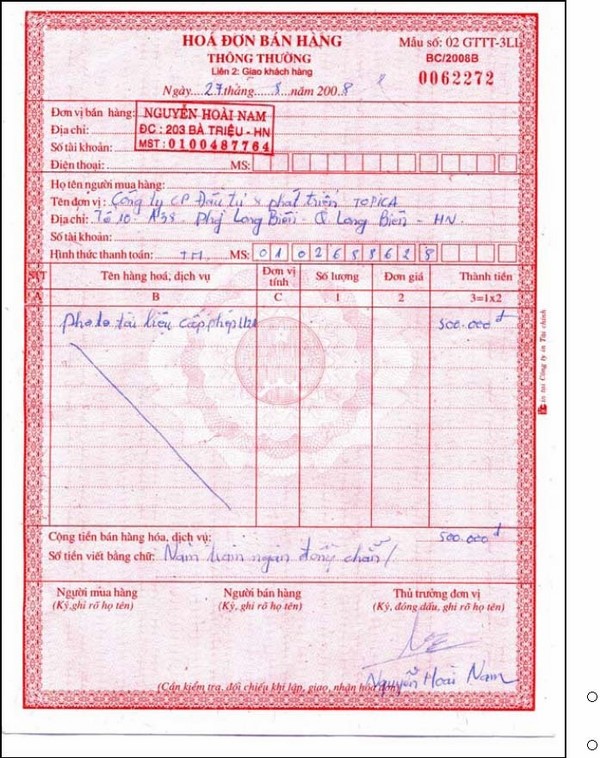 HOÁ ĐƠN BÁN HÀNG
THÔNG THƯỜNG
Liên 2: Giao khách hàng
Mẫu số: 02 GTTT-3LL
BC/2008B
0062272
Ngày....27.tháng....8....năm 2008
Đơn vị bán hàng: NGUYỄN HOÀI NAM
Địa chỉ: ĐC : 203 BÀ TRIỆU - HN
Số tài khoản: MST : 0100487764
Điện thoại: MS:
Họ tên người mua hàng:
Tên đơn vị: Công ty CP Đầu tư & phát triển TOPICA
Địa chỉ: Tổ 10 - A38 - Long Biên - Q Long Biên - HN.
Số tài khoản:
Hình thức thanh toán: TM. MS: 0102688628
STT Tên hàng hoá, dịch vụ Đơn vị tính Số lượng Đơn giá Thành tiền
A B C 1 2 3=1x2
photo tài liệu cấp phép 500.000đ
Cộng tiền bán hàng hóa, dịch vụ: 500.000đ
Số tiền viết bằng chữ: Năm trăm ngàn đồng chẵn/
Người mua hàng Người bán hàng Thủ trưởng đơn vị
(Ký,ghi rõ họ tên) (Ký, ghi rõ họ tên) (Ký, đóng dấu, ghi rõ họ tên)
Nguyễn Hoài Nam
(Cần kiểm tra, đối chiếu khi lập, giao, nhận hóa đơn)
in tại Công ty in Tài chính